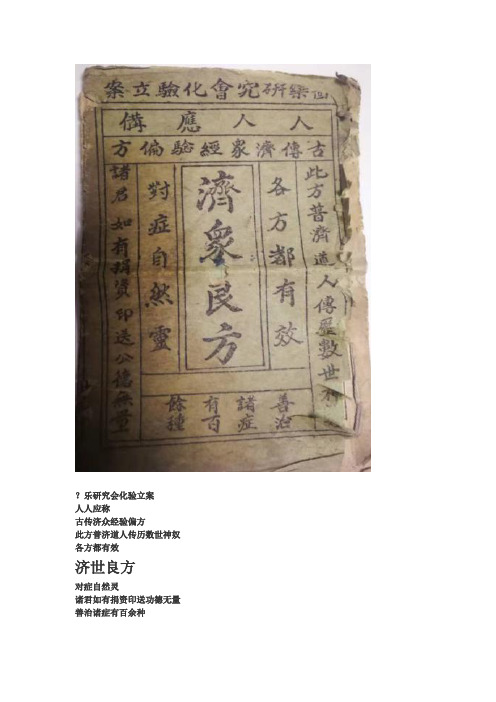 藥研究會化驗立案
人人應備
古傳濟衆經驗偏方
此方普濟道人傳歷數世
各方都有效
濟衆良方
對症自然靈
諸君如有捐资印送公德無量
善治
諸症
有百
餘種
？乐研究会化验立案
人人应称
古传济众经验偏方
此方普济道人传历数世神奴
各方都有效
济世良方
对症自然灵
诸君如有捐资印送功德无量
善治诸症有百余种